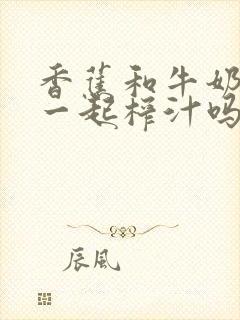 香蕉和牛奶
一起榨汁吗
辰风